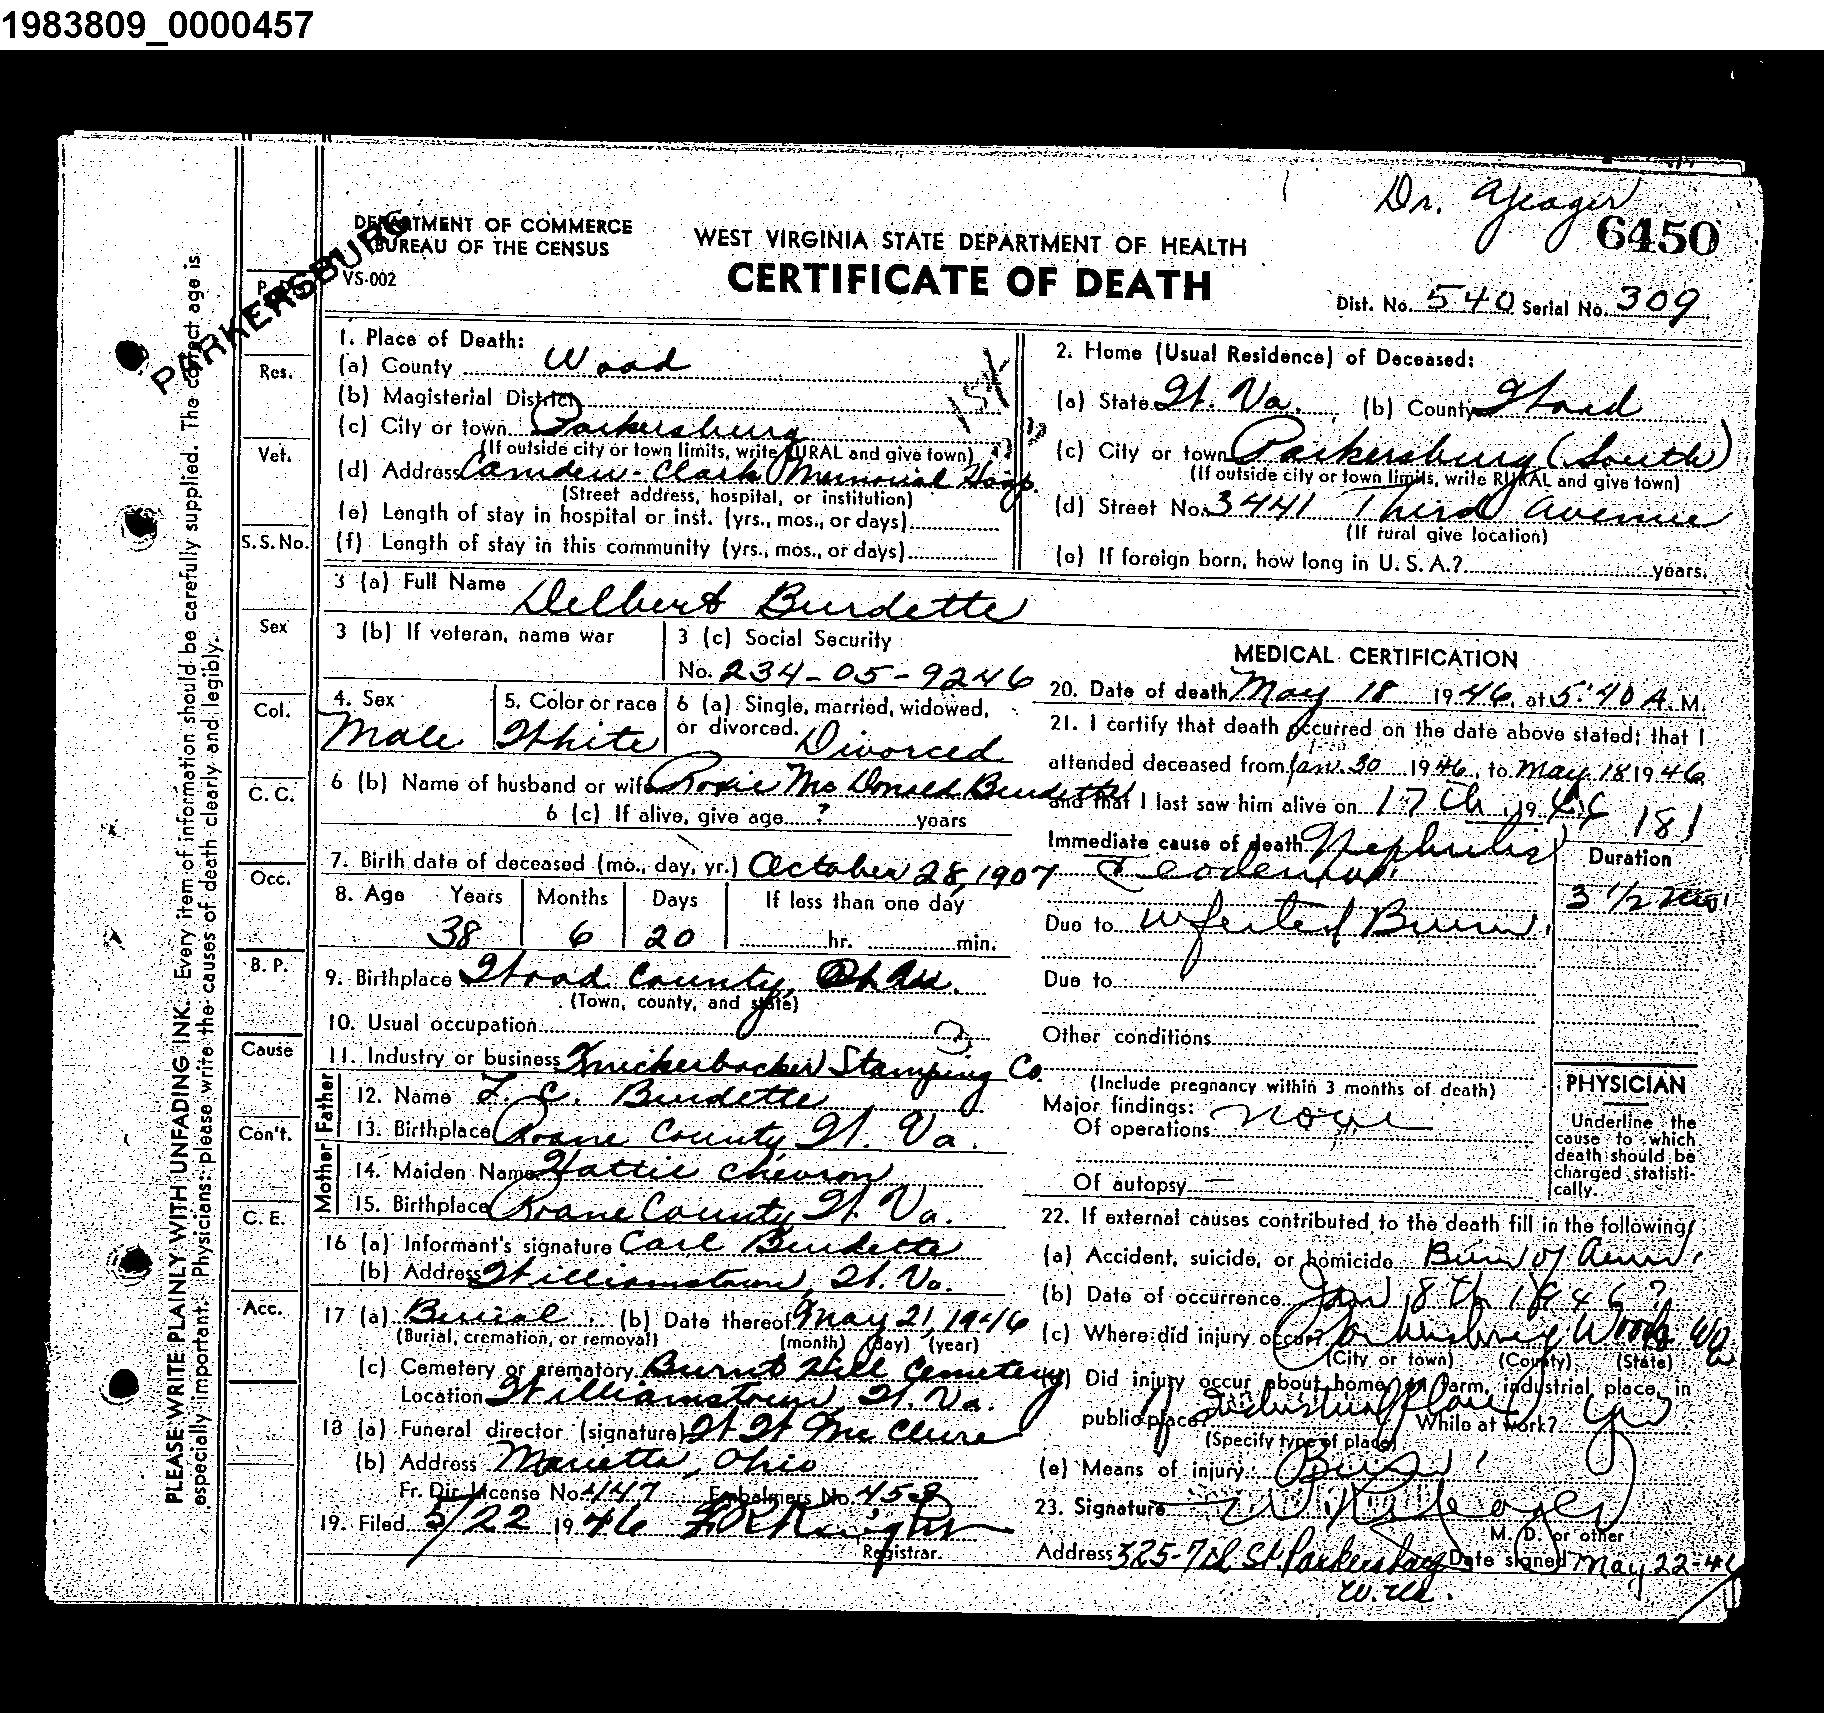 1983809_0000457
Dr. Yeager
6450
DEPARTMENT OF COMMERCE
BUREAU OF THE CENSUS
VS-002
PARKERSBURG
WEST VIRGINIA STATE DEPARTMENT OF HEALTH
CERTIFICATE OF DEATH
Dist. No. 540 Serial No. 309
PLEASE WRITE PLAINLY WITH UNFADING INK. Every item of information should be carefully supplied. The correct age is
especially important. Physicians: please write the causes of death clearly and legibly.
Res.
Vet.
S.S.No.
Sex
Col.
C. C.
Occ.
B. P.
Cause
Con't.
C. E.
Acc.
1. Place of Death:
(a) County Wood
(b) Magisterial District
(c) City or town Parkersburg
(If outside city or town limits, write RURAL and give town)
(d) Address Camden-Clark Memorial Hosp.
(Street address, hospital, or institution)
(e) Length of stay in hospital or inst. (yrs., mos., or days)
(f) Length of stay in this community (yrs., mos., or days)
2. Home (Usual Residence) of Deceased:
(a) State W. Va. (b) County Wood
(c) City or town Parkersburg (South)
(If outside city or town limits, write RURAL and give town)
(d) Street No. 3441 Third Avenue
(If rural give location)
(e) If foreign born, how long in U. S. A.? years.
3 (a) Full Name Delbert Burdette
3 (b) If veteran, name war
3 (c) Social Security
No. 234-05-9246
4. Sex
Male
5. Color or race
White
6 (a) Single, married, widowed,
or divorced. Divorced
6 (b) Name of husband or wife Roxie McDonald Burdette
6 (c) If alive, give age ? years
7. Birth date of deceased (mo., day, yr.) October 28, 1907
8. Age Years Months Days If less than one day
38 6 20 hr. min.
9. Birthplace Wood County,
(Town, county, and state)
10. Usual occupation
11. Industry or business Knickerbocker Stamping Co.
Father
12. Name L. C. Burdette
13. Birthplace Roane County W. Va.
Mother
14. Maiden Name Hattie Chevron
15. Birthplace Roane County W. Va.
16 (a) Informant's signature Carl Burdette
(b) Address Williamstown, W. Va.
17 (a) Burial (b) Date thereof May 21, 1946
(Burial, cremation, or removal) (month) (day) (year)
(c) Cemetery or crematory Burnt Hill Cemetery
Location Williamstown, W. Va.
18 (a) Funeral director (signature) W W McClure
(b) Address Marietta, Ohio
Fr. Dir. License No. 447 Embalmers No. 458
19. Filed 5/22 1946
Registrar.
MEDICAL CERTIFICATION
20. Date of death May 18 1946, at 5:40 A. M.
21. I certify that death occurred on the date above stated; that I
attended deceased from Jan. 30 1946, to May 18 1946
and that I last saw him alive on 17th, 1946
181
Immediate cause of death Nephritis
Duration
3 1/2 mo.
Due to Infected Burn.
Due to
Other conditions
(Include pregnancy within 3 months of death)
Major findings:
Of operations none
Of autopsy —
PHYSICIAN
Underline the
cause to which
death should be
charged statisti-
cally.
22. If external causes contributed to the death fill in the following:
(a) Accident, suicide, or homicide Burn of
(b) Date of occurrence Jan 8th 1946?
(c) Where did injury occur? Parkersburg Wood W Va
(City or town) (County) (State)
(d) Did injury occur about home, on farm, industrial place, in
public place? Industrial place While at work? yes
(Specify type of place)
(e) Means of injury Burn
23. Signature
M. D. or other
Address 325-7th St. Parkersburg Date signed May 22-46
W. Va.